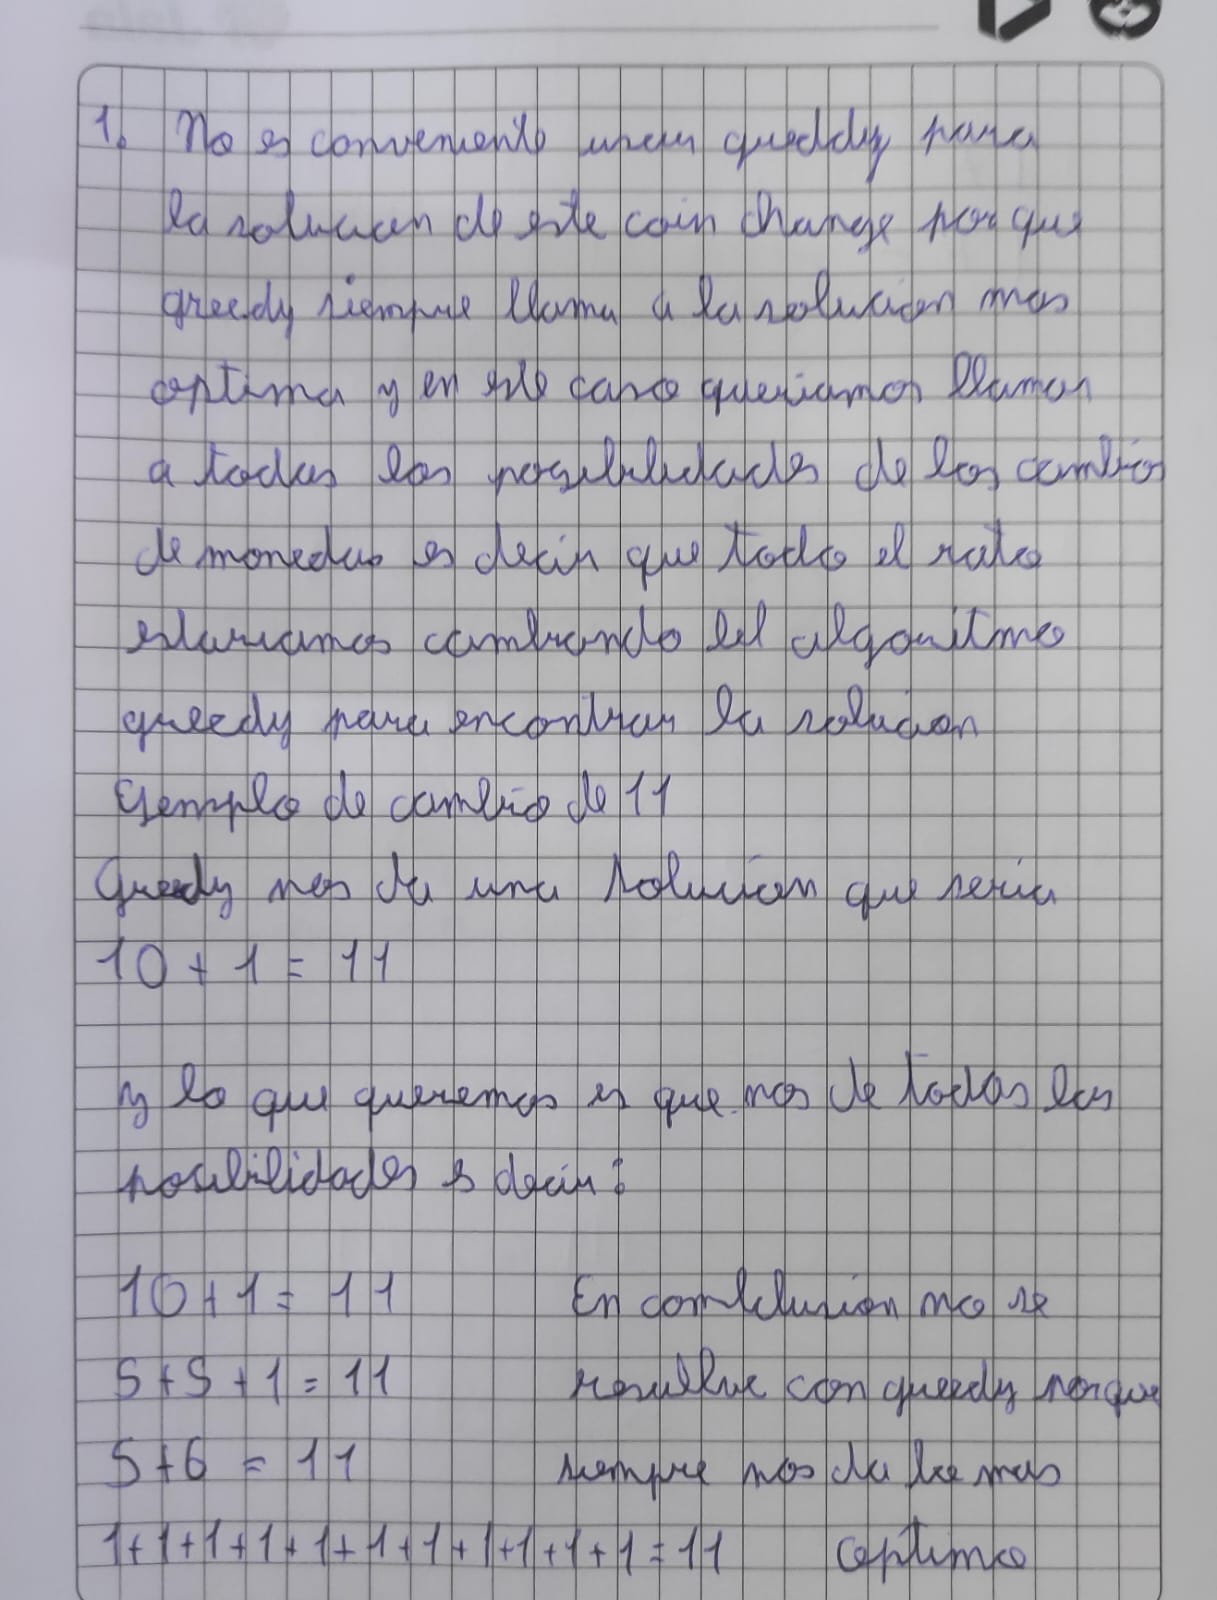 1. No es conveniente usar greddy para
la solucion de este coin change por que
greedy siempre llama a la solucion mas
optima y en este caso queriamos llamar
a todas las posibilidades de los cambios
de monedas es decir que todo el rato
estariamos cambiando el algoritmo
greedy para encontrar la solucion
Ejemplo de cambio de 11
Greedy nos da una solucion que seria
10 + 1 = 11
y lo que queremos es que nos de todas las
posibilidades es decir:
10 + 1 = 11
5 + 5 + 1 = 11
5 + 6 = 11
1+1+1+1+1+1+1+1+1+1+1=11
En conclusion no se
resuelve con greedy porque
siempre nos da lo mas
optimo